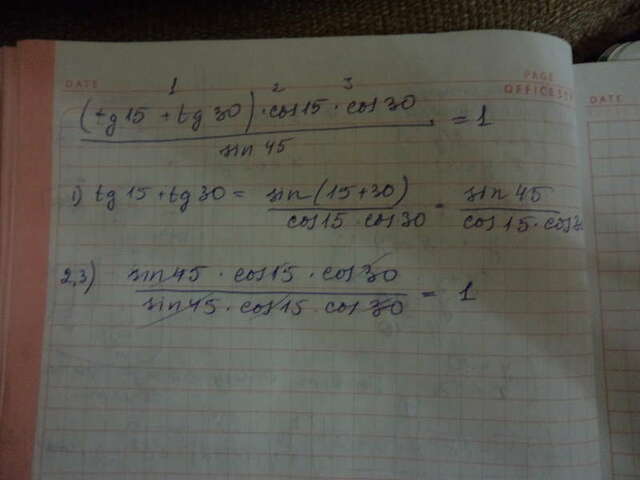 DATE
PAGE
OFFICE
DATE
1 2 3
(tg 15 + tg 30) · cos 15 · cos 30
= 1
sin 45
1) tg 15 + tg 30 = sin (15+30) = sin 45
cos 15 · cos 30 cos 15 · cos
2,3) sin 45 · cos 15 · cos 30
= 1
sin 45 · cos 15 · cos 30